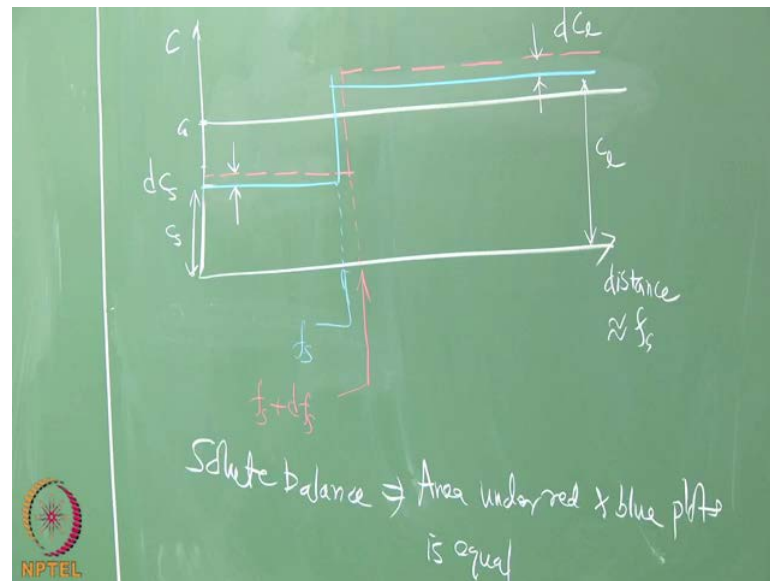 C
dCₗ
a
dCₛ
Cₛ
Cₗ
distance
≈ fₛ
fₛ
fₛ+dfₛ
Solute balance ⇒ Area under red & blue plots
is equal
NPTEL